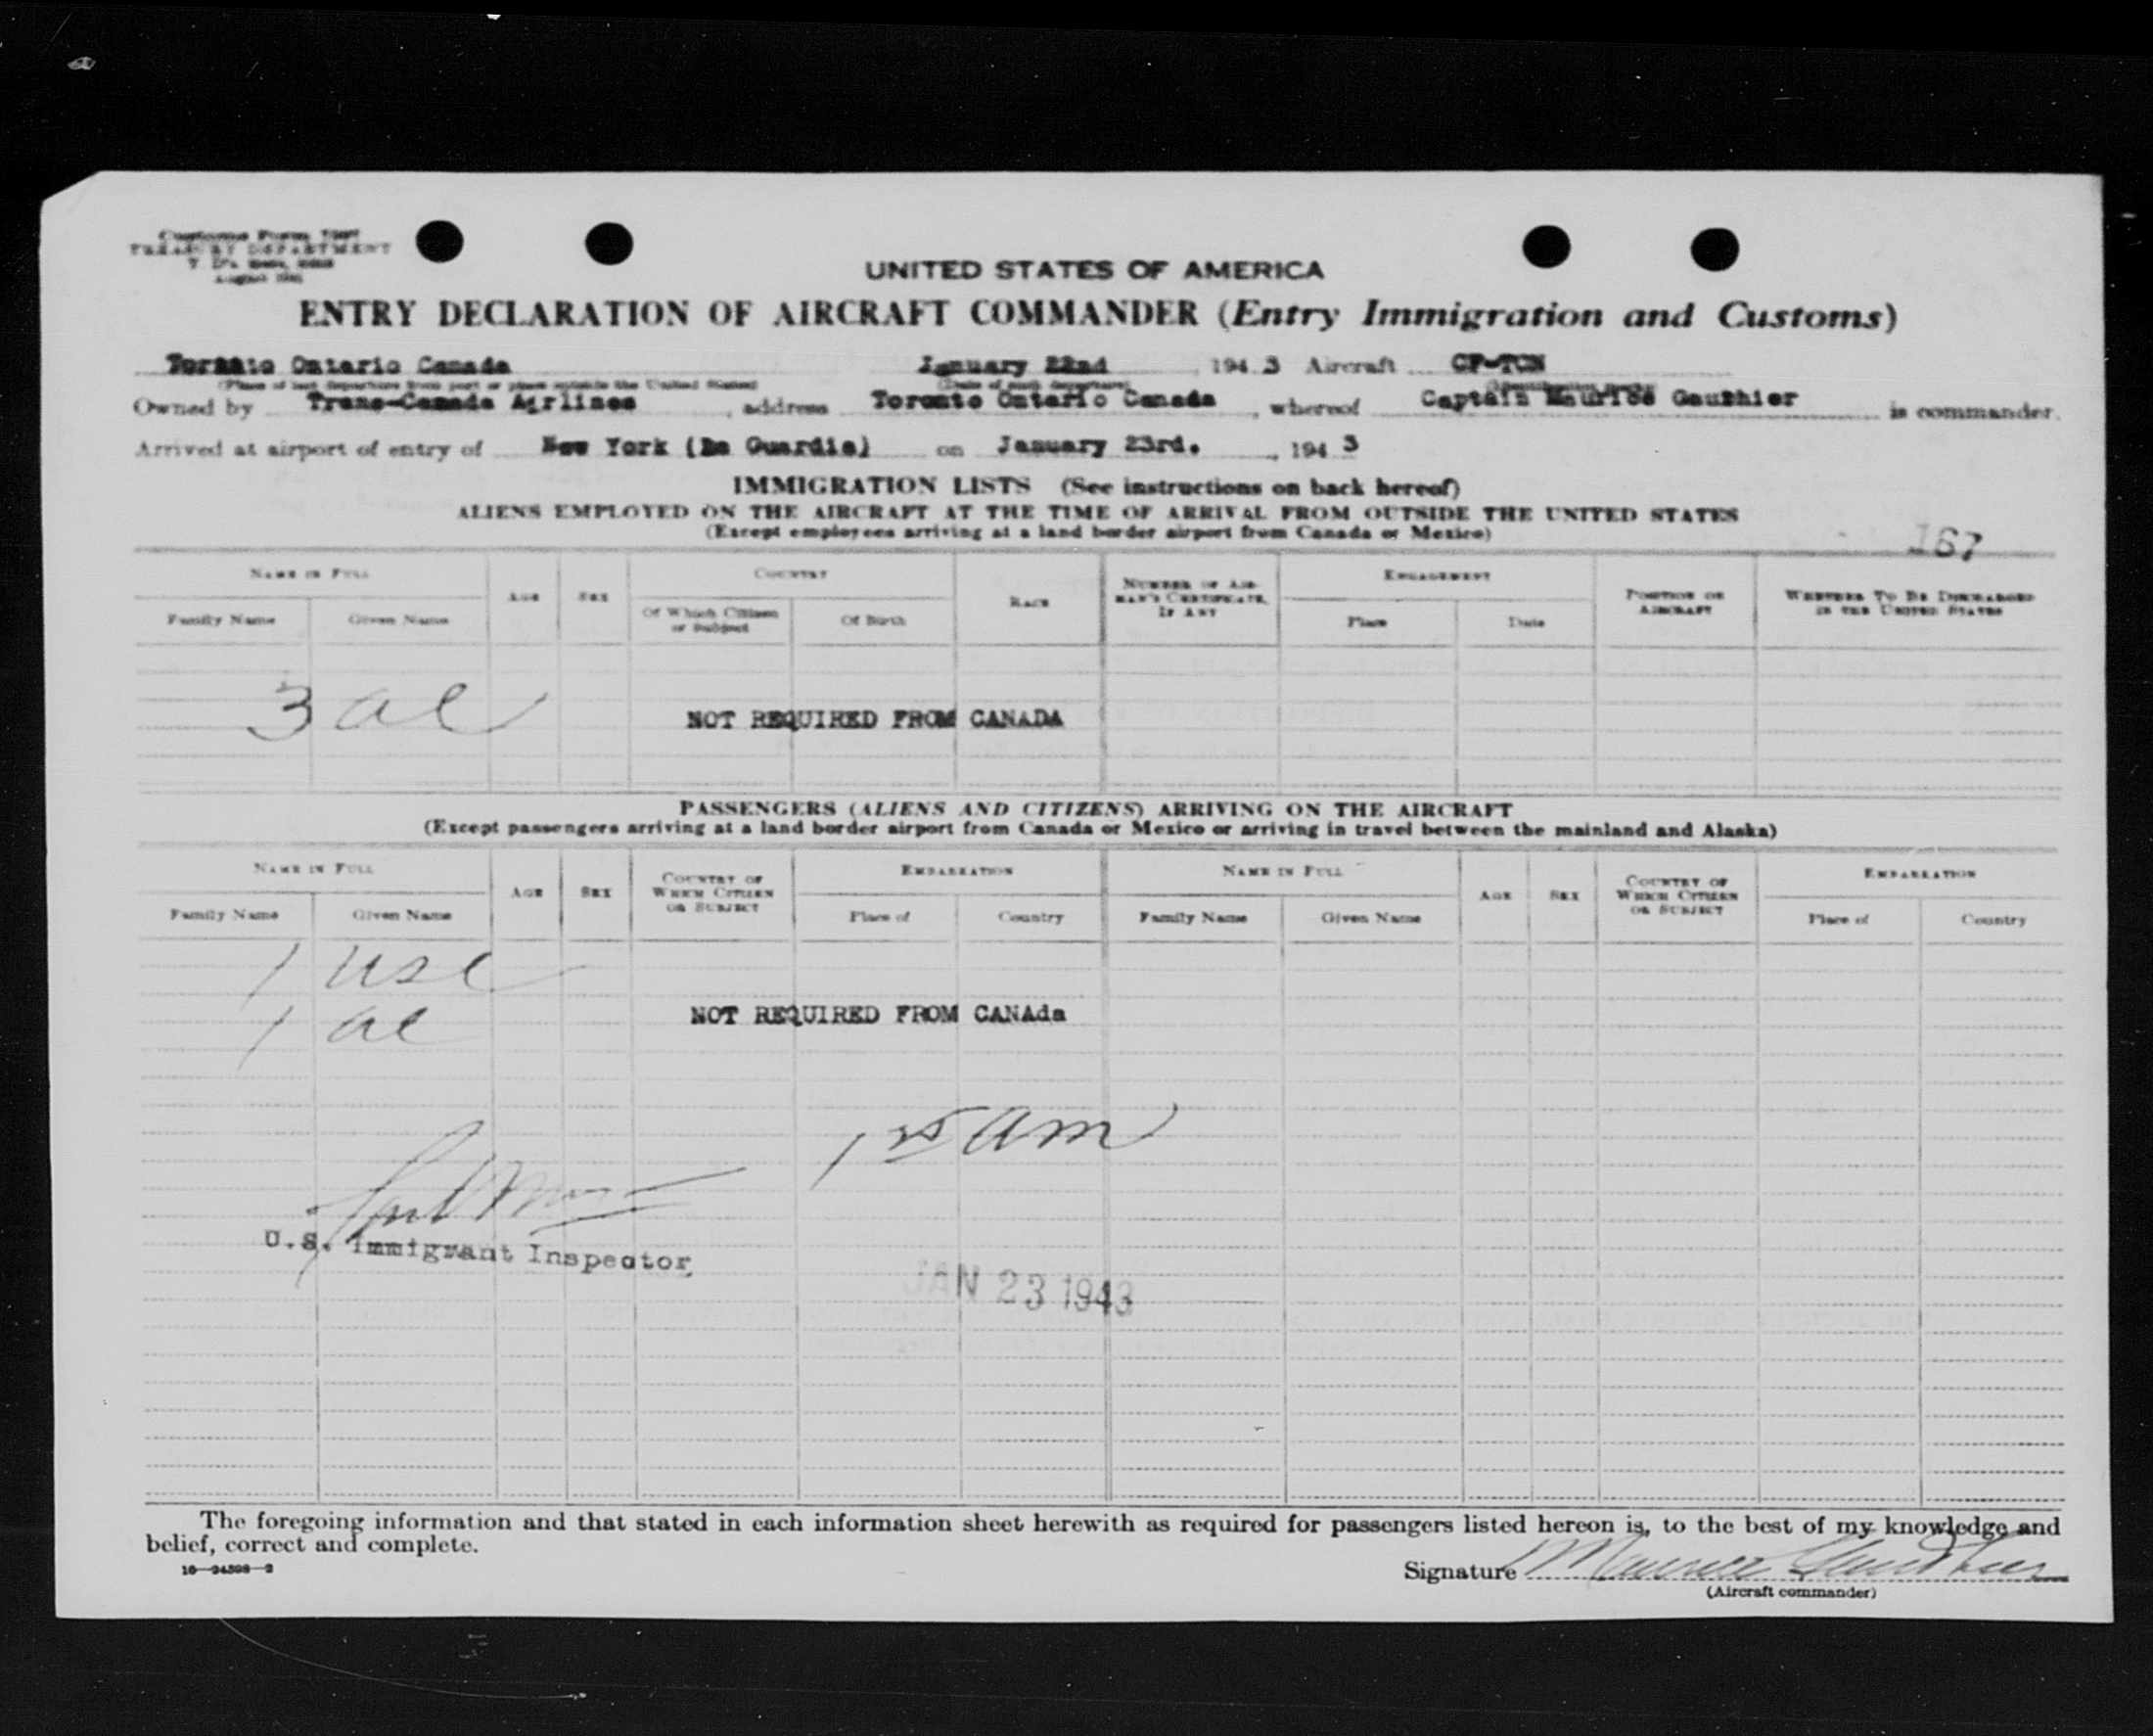 Customs Form
TREASURY DEPARTMENT
August
UNITED STATES OF AMERICA
ENTRY DECLARATION OF AIRCRAFT COMMANDER (Entry Immigration and Customs)
Toronto Ontario Canada January 22nd, 1943 Aircraft CF-TCN
(Place of last departure from port or place outside the United States) (Date of such departure)
Owned by Trans-Canada Airlines, address Toronto Ontario Canada, whereof Captain Maurice Gauthier is commander.
Arrived at airport of entry of New York (La Guardia) on January 23rd., 1943
IMMIGRATION LISTS (See instructions on back hereof)
ALIENS EMPLOYED ON THE AIRCRAFT AT THE TIME OF ARRIVAL FROM OUTSIDE THE UNITED STATES
(Except employees arriving at a land border airport from Canada or Mexico)
167
NAME IN FULL AGE SEX COUNTRY RACE NUMBER OF AIRMAN'S CERTIFICATE, IF ANY ENGAGEMENT POSITION ON AIRCRAFT WHETHER TO BE DISCHARGED IN THE UNITED STATES
Family Name Given Name Of Which Citizen or Subject Of Birth Place Date
3 al
NOT REQUIRED FROM CANADA
PASSENGERS (ALIENS AND CITIZENS) ARRIVING ON THE AIRCRAFT
(Except passengers arriving at a land border airport from Canada or Mexico or arriving in travel between the mainland and Alaska)
NAME IN FULL AGE SEX COUNTRY OF WHICH CITIZEN OR SUBJECT EMBARKATION NAME IN FULL AGE SEX COUNTRY OF WHICH CITIZEN OR SUBJECT EMBARKATION
Family Name Given Name Place of Country Family Name Given Name Place of Country
1 usc
1 al
NOT REQUIRED FROM CANAda
am
U.S. Immigrant Inspector
JAN 23 1943
The foregoing information and that stated in each information sheet herewith as required for passengers listed hereon is, to the best of my knowledge and
belief, correct and complete.
16—24598—2
Signature Maurice Gauthier
(Aircraft commander)